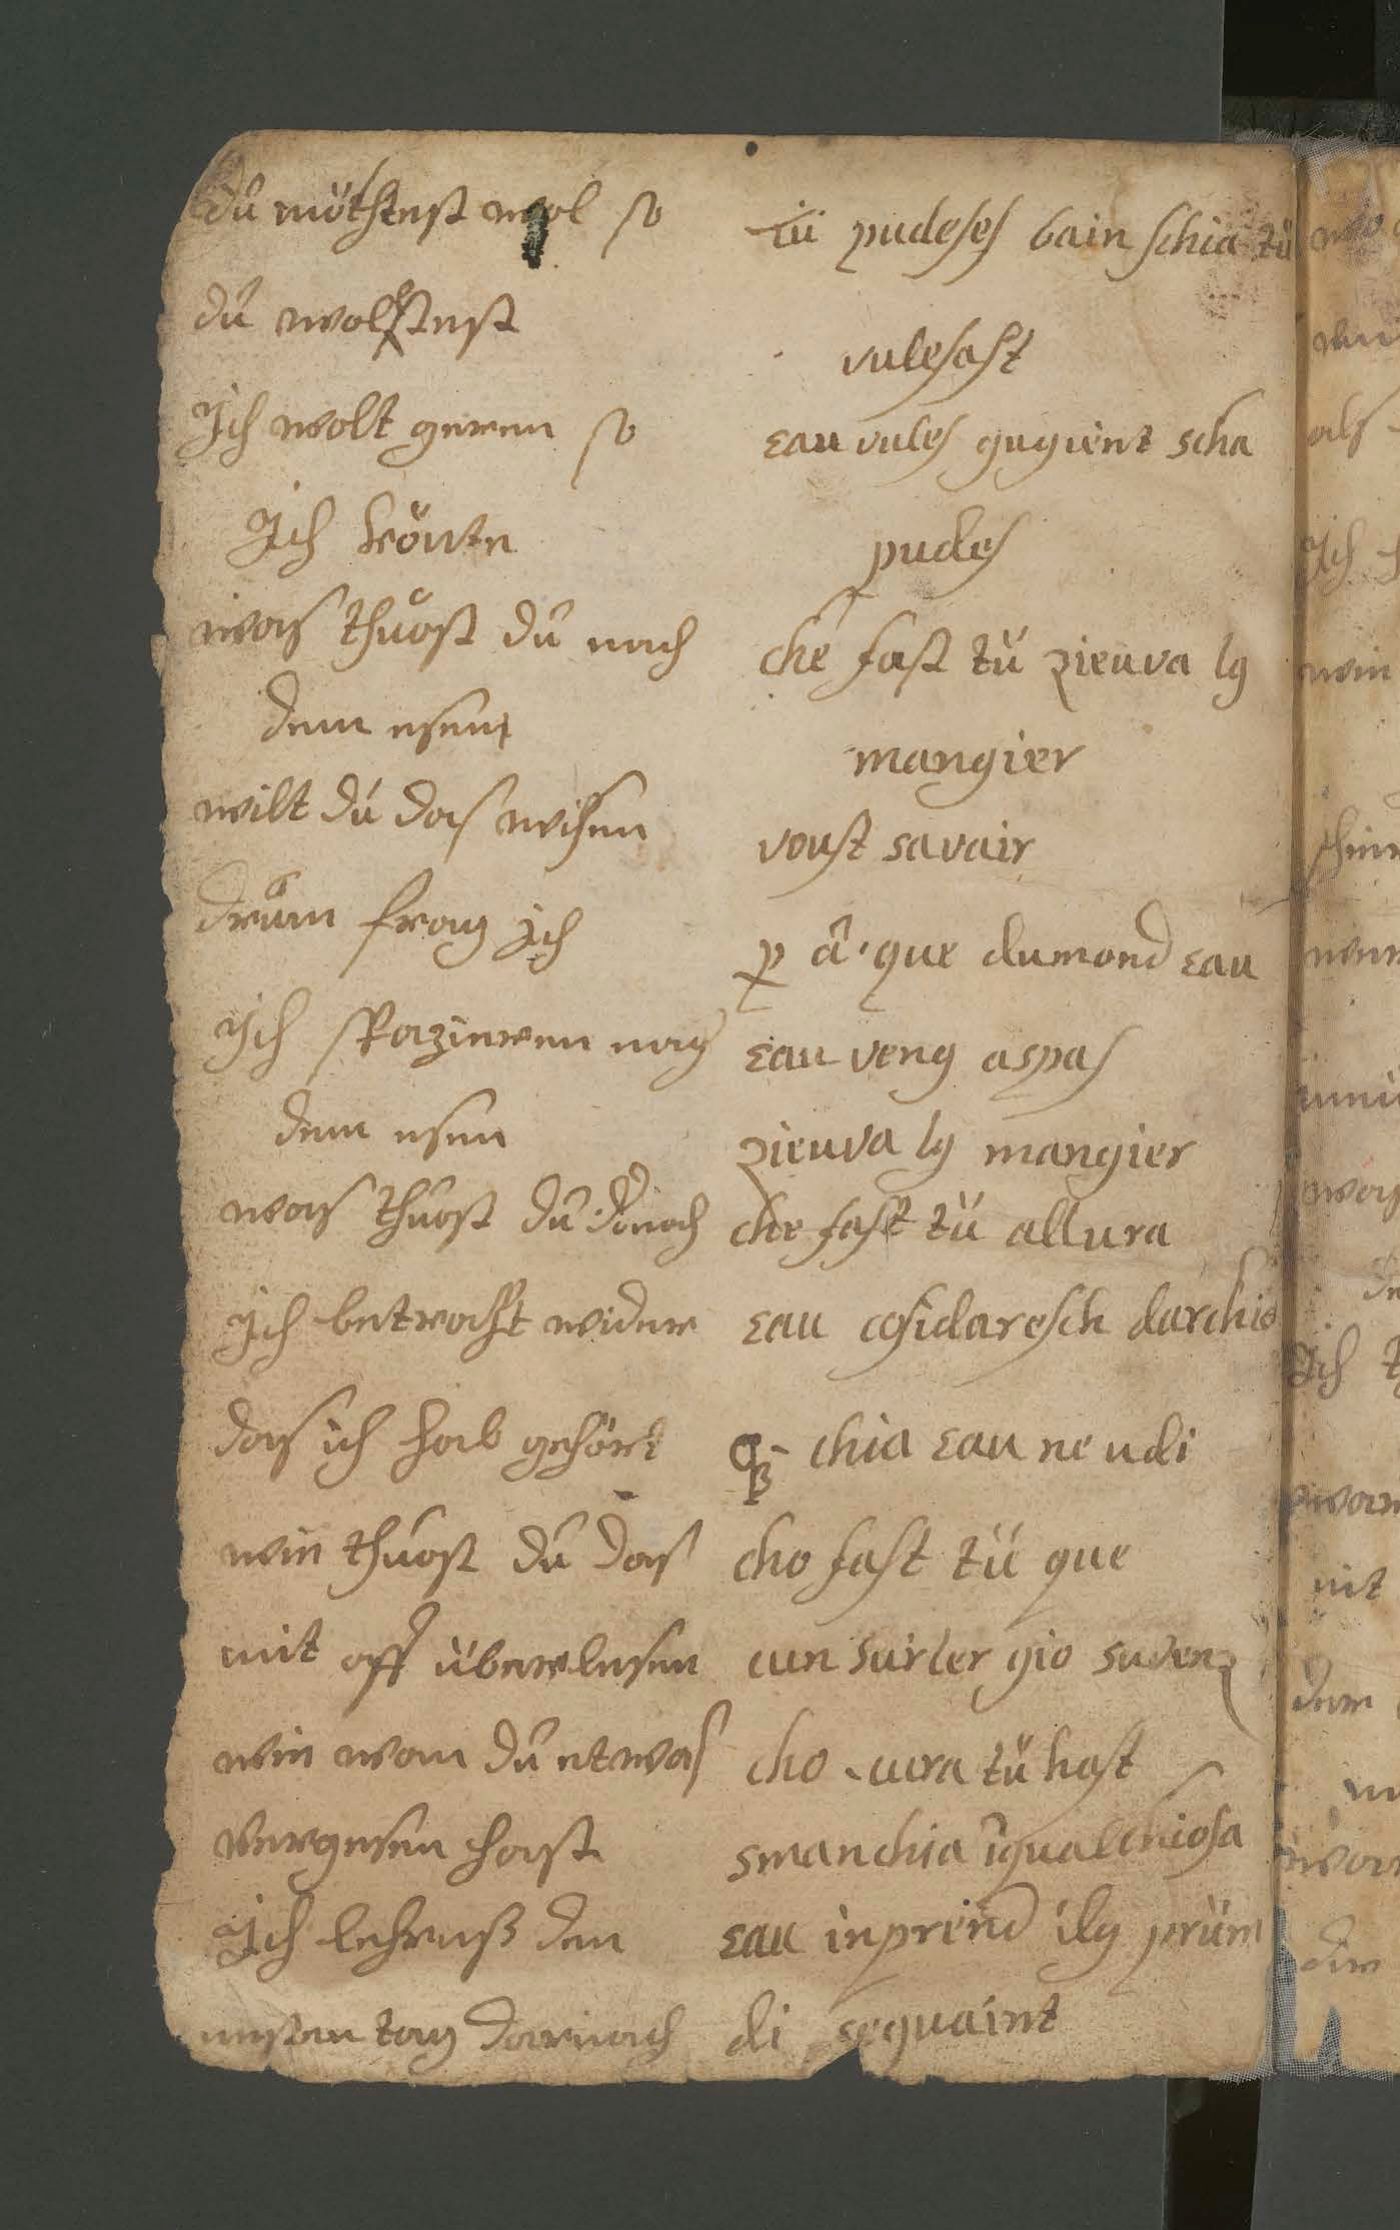 du möchtest wol so
tü pudeses bain schia tü
du woltest
vulesast
Ich wolt geren so
eau vules gugient scha
Ich könte
pudes
was thuost du nach
che fast tü zieuva lg
dem esen
mangier
wilt du das wisen
voust savair
drum frag ich
p̱ â que dumond eau
Ich spazieren nach
eau veng aspas
dem esen
zieuva lg mangier
was thuost du donoch
che fast tü allura
Ich betracht wider
eau cōsidaresch darchio
das ich hab gehört
chia eau ne udi
wie thuost du das
cho fast tü que
mit oft überlesen
cun surler gio suvenz
wie wan du etwas
cho cura tü hast
vergesen hast
smanchia iqualchiosa
Ich lehrnß den
eau inprend ilg prüm
nesten tag darnach
di sequaint